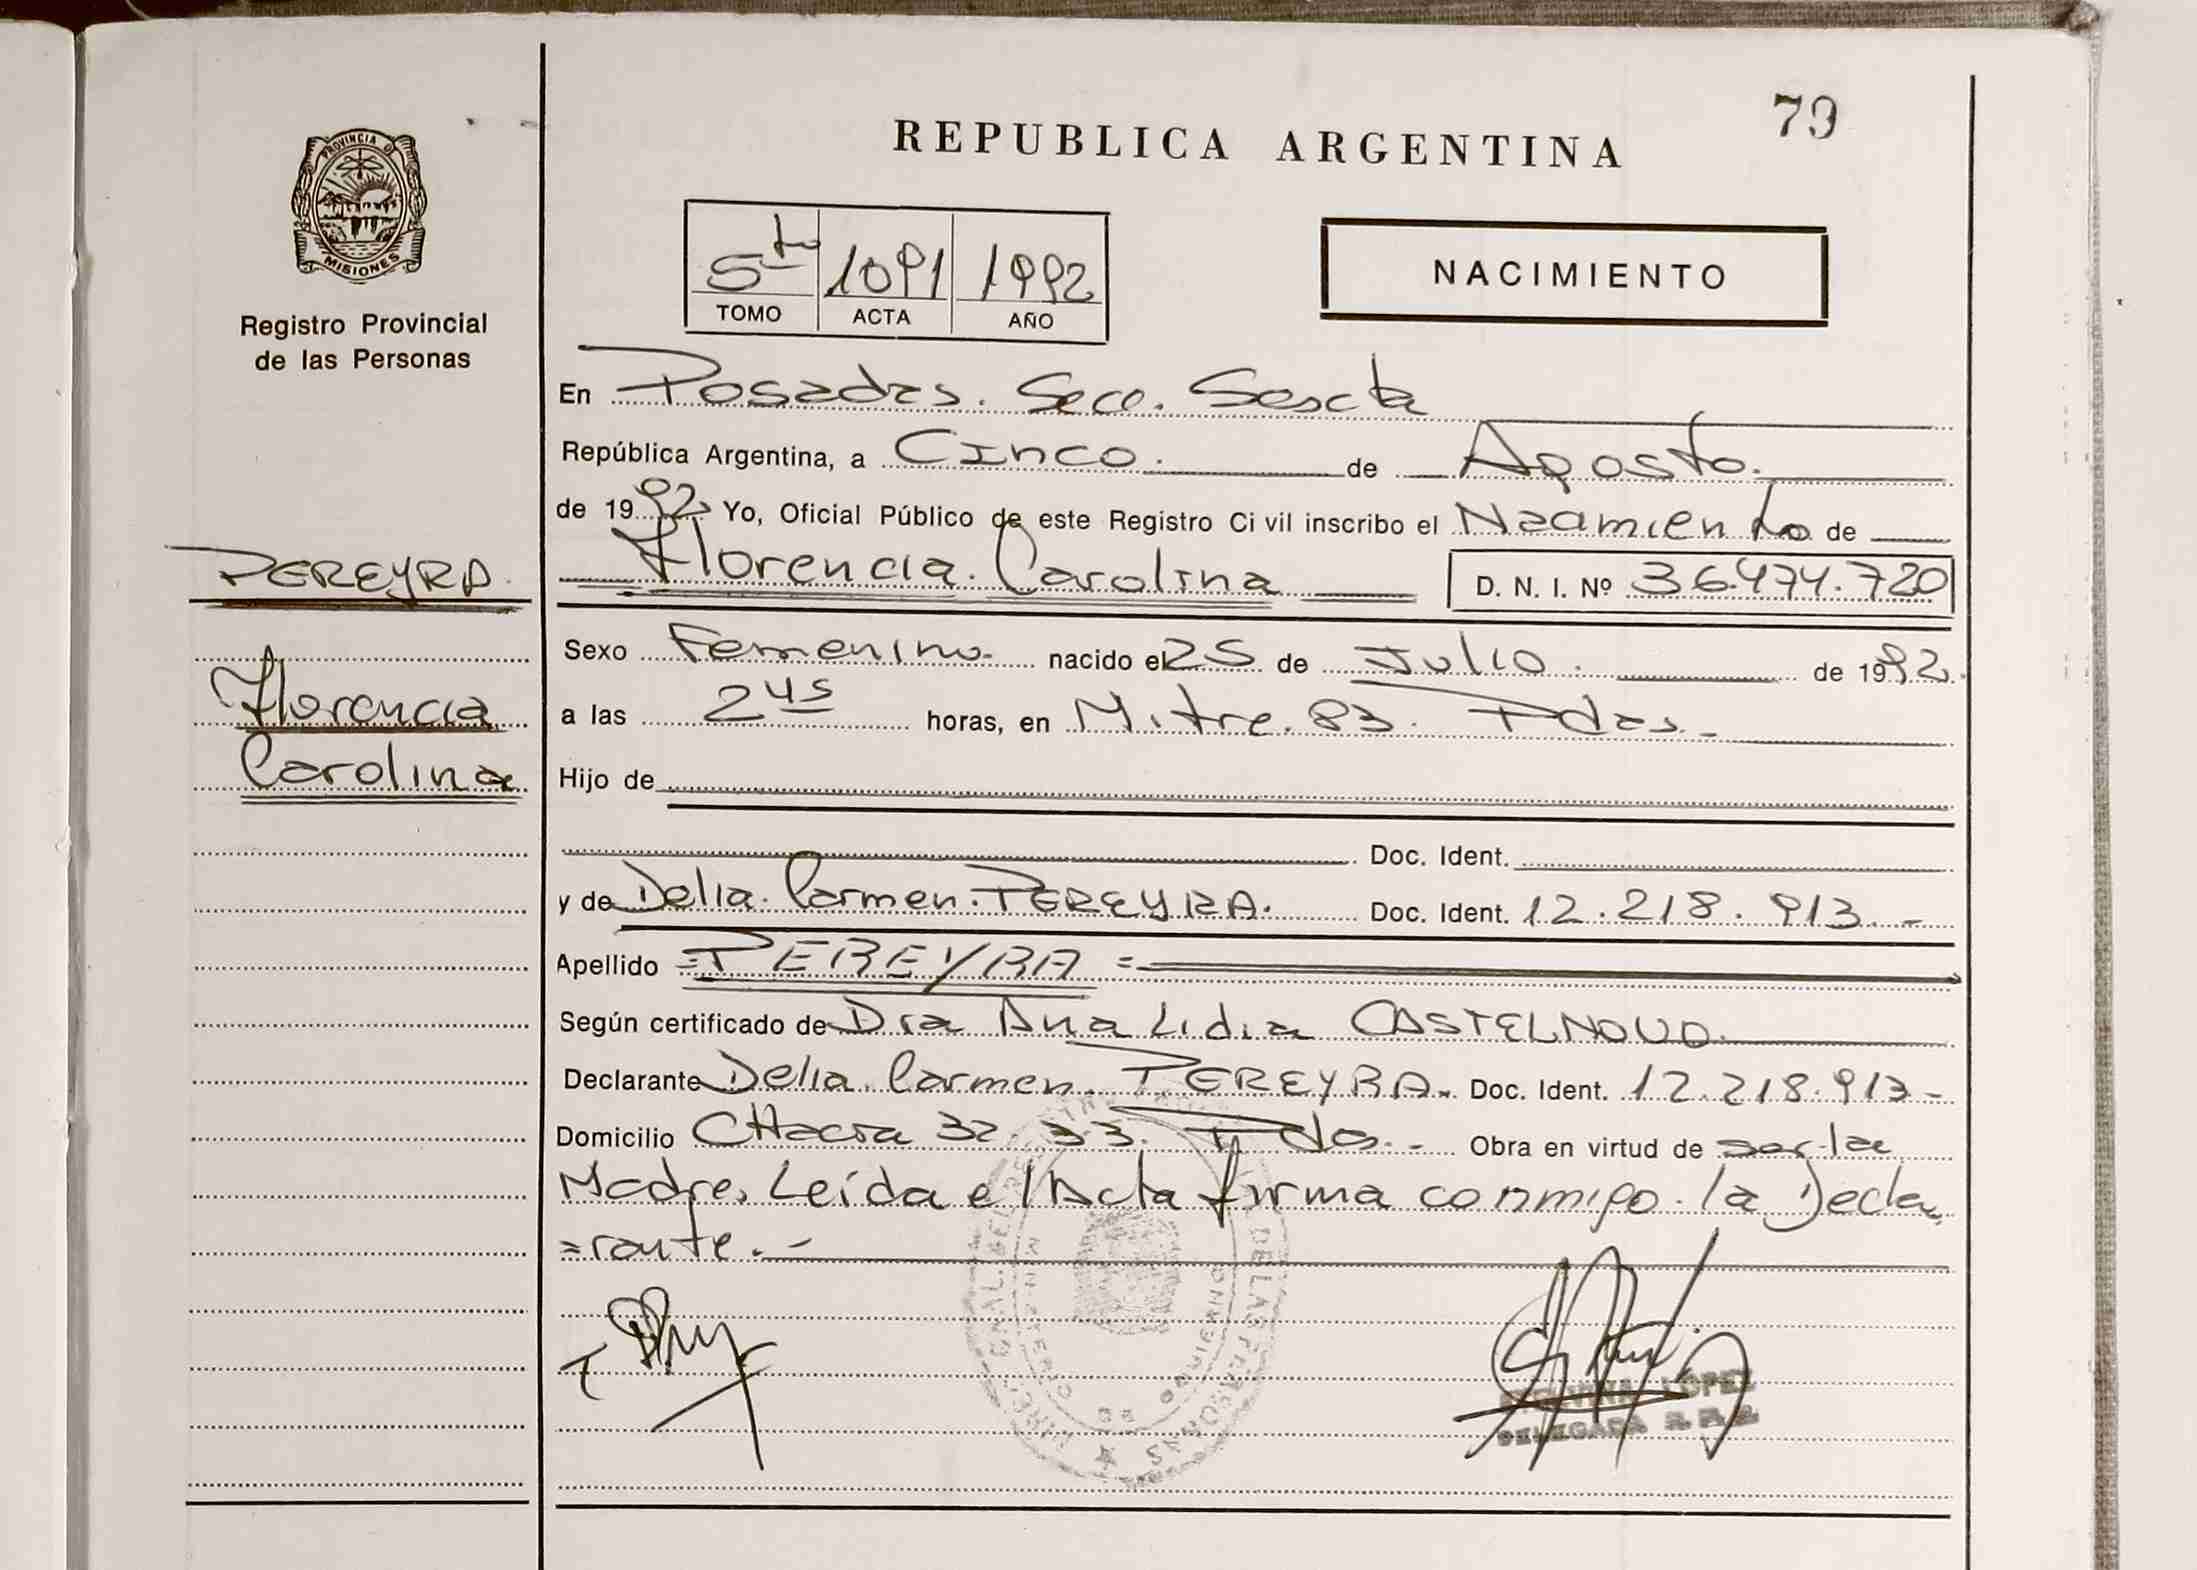 79
REPUBLICA ARGENTINA
PROVINCIA D
MISIONES
Registro Provincial
de las Personas
5to 1091 1992
TOMO ACTA AÑO
NACIMIENTO
En Posadas. Secc. Sexcta
República Argentina, a Cinco. de Agosto.
de 1992 Yo, Oficial Público de este Registro Ci vil inscribo el Nzamiento de
PEREYRA.
Florencia. Carolina D. N. I. Nº 36.474.720
Sexo Femenino. nacido el 25 de Julio. de 1992.
Florencia
a las 2 45 horas, en Mitre. 83. Pdas.-
Carolina
Hijo de
Doc. Ident.
y de Delia. Carmen. PEREYRA. Doc. Ident. 12.218.913.-
Apellido =PEREYRA=
Según certificado de Dra Ana Lidia CASTELNOVO.
Declarante Delia. Carmen. PEREYRA. Doc. Ident. 12.218.913-
Domicilio CHacra 32 33. Pdas.- Obra en virtud de ser la
Madre. Leída el Acta firma conmigo. la Decla
=rante.-
DE LAS PERSONAS
LOPEZ
DELEGADA R.P.P.